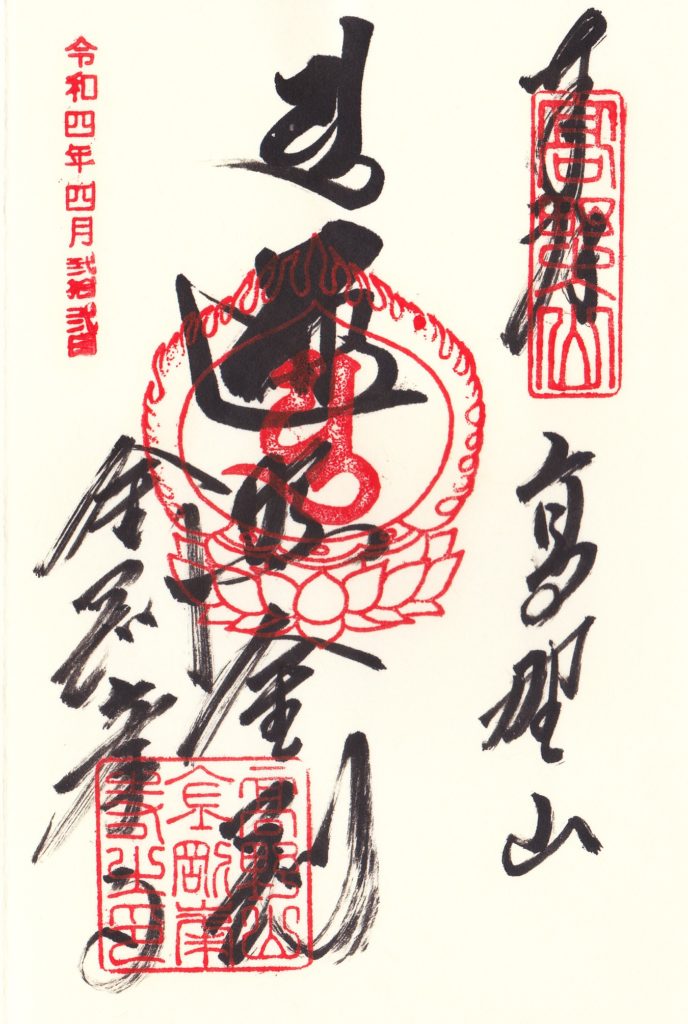 奉拝
高野山
高野山
遍照金剛
金剛峯寺
令和四年四月弐拾弐日
高野山
金剛峯
寺之印